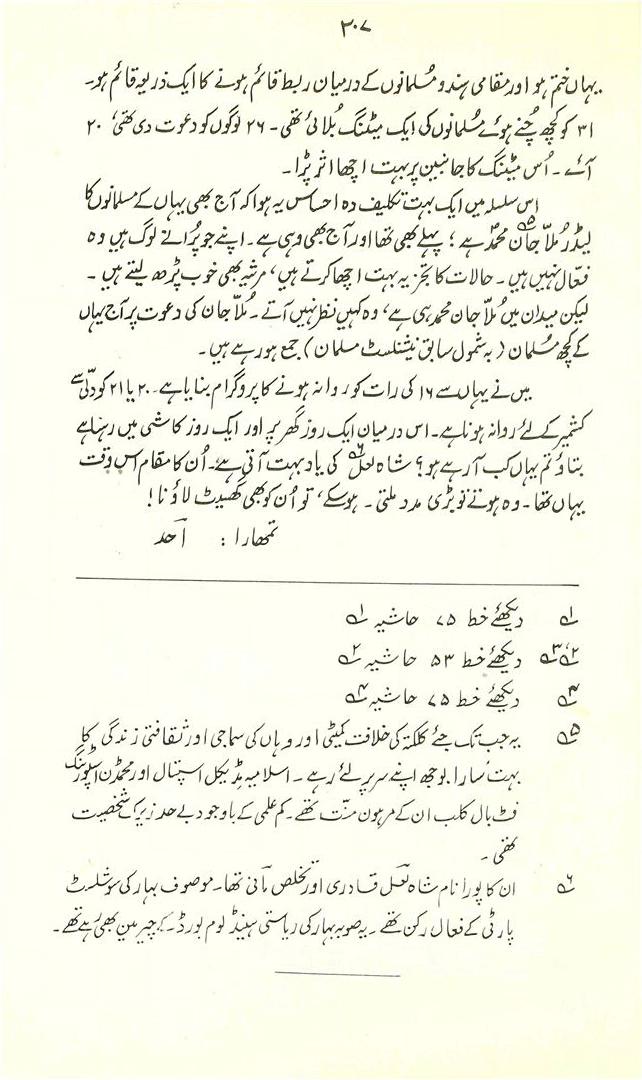 ۲۰۷
یہاں ختم ہو اور مقامی ہندو مُسلمانوں کے درمیان ربط قائم ہونے کا ایک ذریعہ قائم ہو۔
۳۱ کو کچھ چُنے ہوئے مُسلمانوں کی ایک میٹنگ بُلائی تھی۔ ۲۶ لوگوں کو دعوت دی تھی، ۲۰
آئے۔ اُس میٹنگ کا جانبین پر بہت اچھا اثر پڑا۔
اس سلسلہ میں ایک بہت تکلیف دہ احساس یہ ہوا کہ آج بھی یہاں کے مسلمانوں کا
لیڈر مُلّا جان محمدؐ ۵ ہے؛ پہلے بھی تھا اور آج بھی وہی ہے۔ اپنے جو پُرانے لوگ ہیں وہ
فعّال نہیں ہیں۔ حالات کا تجزیہ بہت اچھا کرتے ہیں، مرثیہ بھی خوب پڑھ لیتے ہیں۔
لیکن میدان میں مُلّا جان محمد ہی ہے، وہ کہیں نظر نہیں آتے۔ مُلّا جان کی دعوت پر آج یہاں
کے کچھ مُسلمان (بہ شمول سابق نیشنلسٹ مسلمان) جمع ہو رہے ہیں۔
میں نے یہاں سے ۱۶ کی رات کو روانہ ہونے کا پروگرام بنایا ہے۔ ۲۰ یا ۲۱ کو دلّی سے
کشمیر کے لئے روانہ ہونا ہے۔ اس درمیان ایک روز گھر پر اور ایک روز کاشی میں رہنا ہے
بتاؤ تم یہاں کب آ رہے ہو؟ شاہ لعل ۶ کی یاد بہت آتی ہے۔ اُن کا مقام اس وقت
یہاں تھا۔ وہ ہوتے تو بڑی مدد ملتی۔ ہو سکے، تو اُن کو بھی گھسیٹ لاؤ نا!
تمھارا: احد
۱ دیکھئے خط ۷۵ حاشیہ ۱
۲، ۳ دیکھئے خط ۵۳ حاشیہ ۲
۴ دیکھئے خط ۷۵ حاشیہ ۴
۵ یہ جب تک جئے کلکتہ کی خلافت کمیٹی اور وہاں کی سماجی اور ثقافتی زندگی کا
بہت سارا بوجھ اپنے سر پر لئے رہے۔ اسلامیہ مِڈیکل اسپتال اور محمڈن اسپورٹنگ
فٹ بال کلب ان کے مرہون منّت تھے۔ کم علمی کے باوجود بے حد زیرک شخصیت
تھی۔
۶ ان کا پورا نام شاہ لعل قادری اور تخلص مآنی تھا۔ موصوف بہار کی سوشلسٹ
پارٹی کے فعال رکن تھے۔ یہ صوبہ بہار کی ریاستی ہینڈ لوم بورڈ کے چیرمین بھی رہے تھے۔